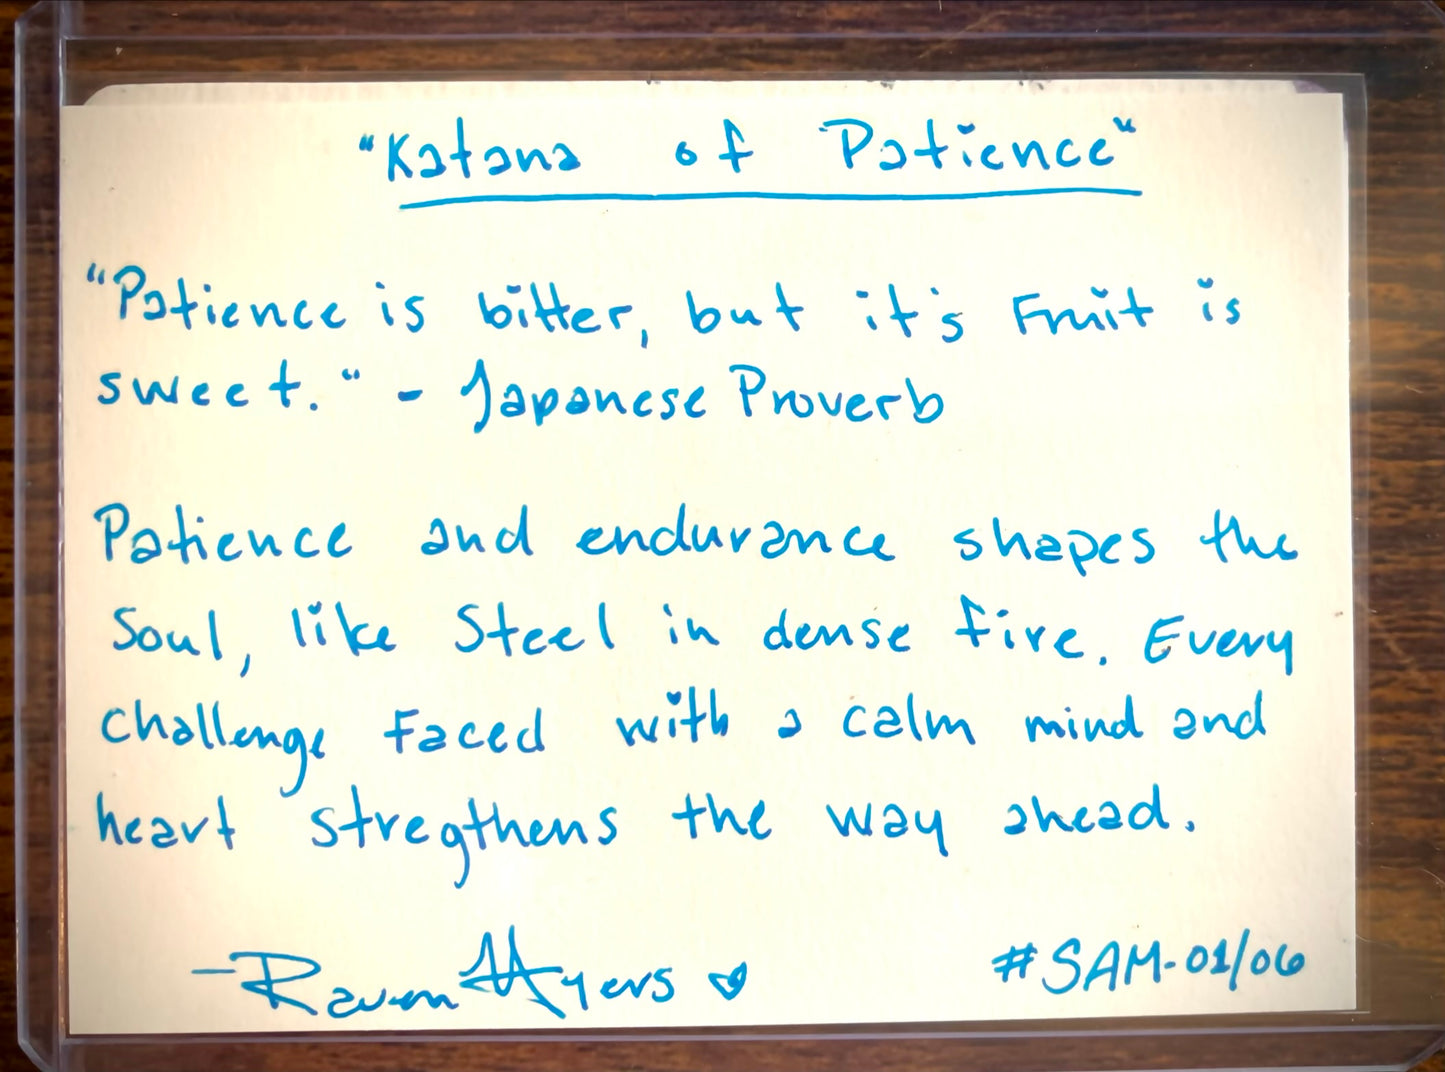 "Katana of Patience"
"Patience is bitter, but it's Fruit is
sweet." - Japanese Proverb
Patience and endurance shapes the
Soul, like Steel in dense fire. Every
challenge faced with a calm mind and
heart stregthens the way ahead.
-Raven Ayers
#SAM-01/06